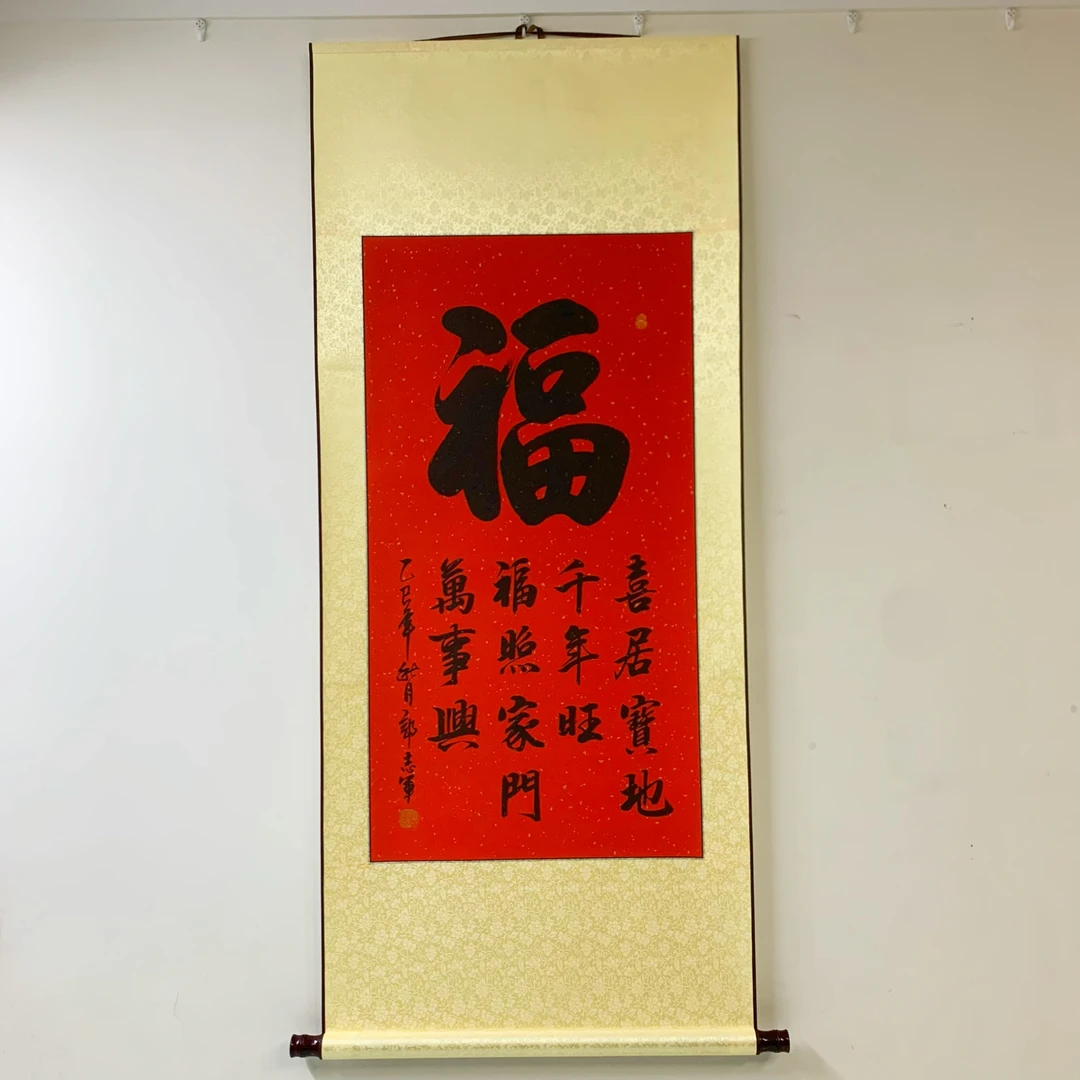 福
喜居寶地
千年旺
福照家門
萬事興
乙巳年秋月郭志軍